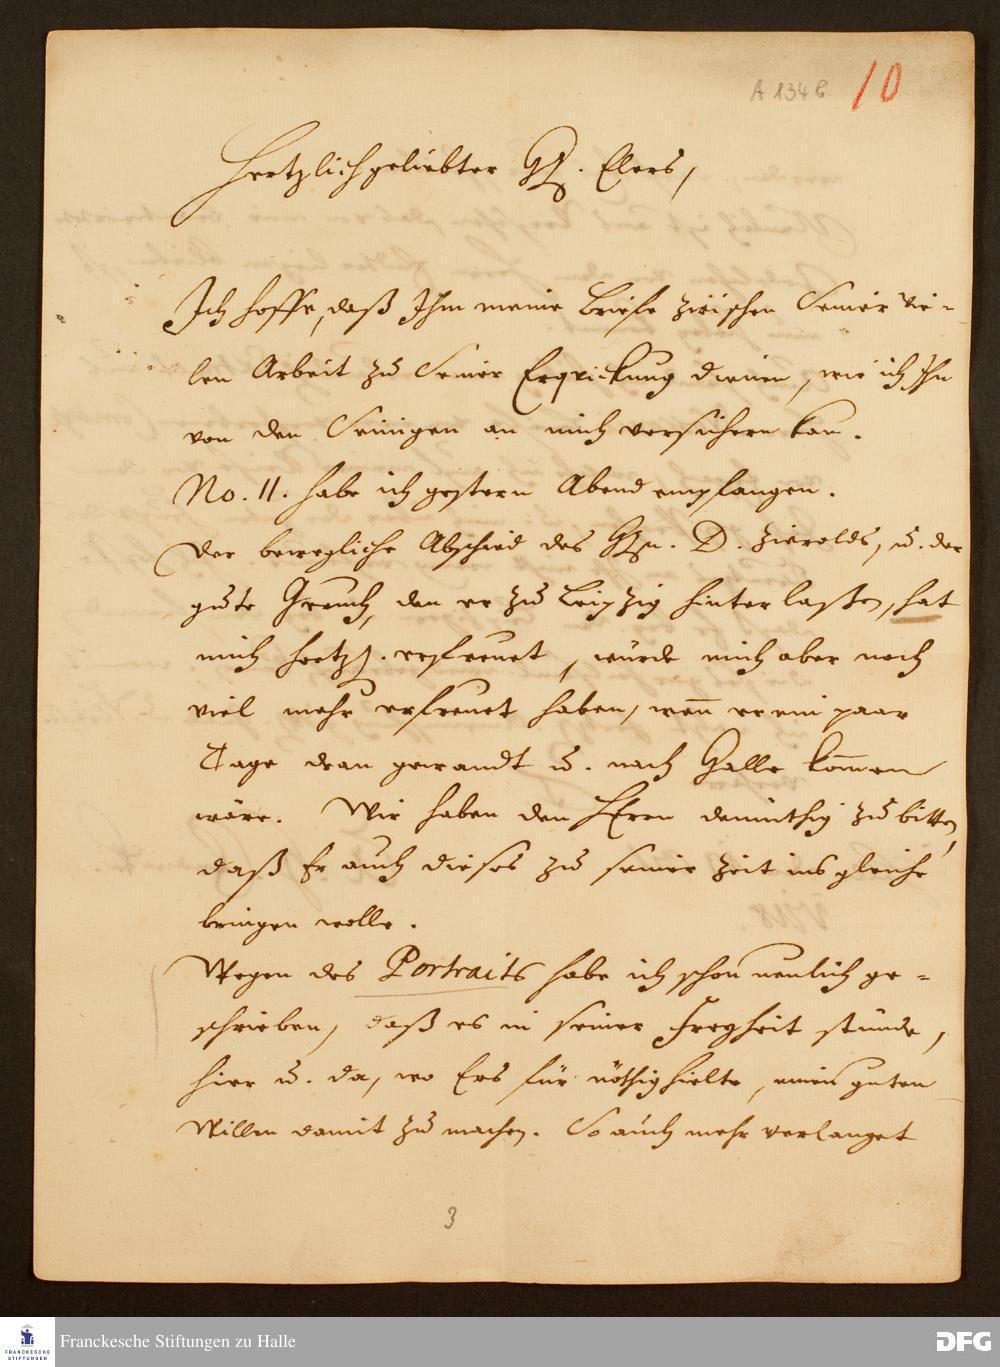 A 134 b 10
Hertzlichgeliebter Hr. Elers,
Ich hoffe, daß Ihm meine Briefe zwischen Seiner vie-
len Arbeit zu Seiner Erqvickung dienen, wie ich Ihn
von den Seinigen an mich versichern kan.
No. 11. habe ich gestern Abend empfangen.
Der bewegliche Abschied des Hrn. D. Zierolds, u. der
gute Geruch, den er zu Leipzig hinterlaßen, hat
mich hertzl. erfreuet, würde mich aber noch
viel mehr erfreuet haben, wen̅ er ein paar
Tage dran gewandt u. nach Halle kom̅en
wäre. Wir haben den HErrn demüthig zu bitten,
daß Er auch dieses zu seiner Zeit ins gleiche
bringen wolle.
Wegen des Portraits habe ich schon neulich ge-
schrieben, daß es in seiner Freyheit stünde,
hier u. da, wo Ers für nöthig hielte, einen guten
Willen damit zu machen. So auch mehr verlanget
3
FRANCKESCHE
STIFTUNGEN
Franckesche Stiftungen zu Halle
DFG